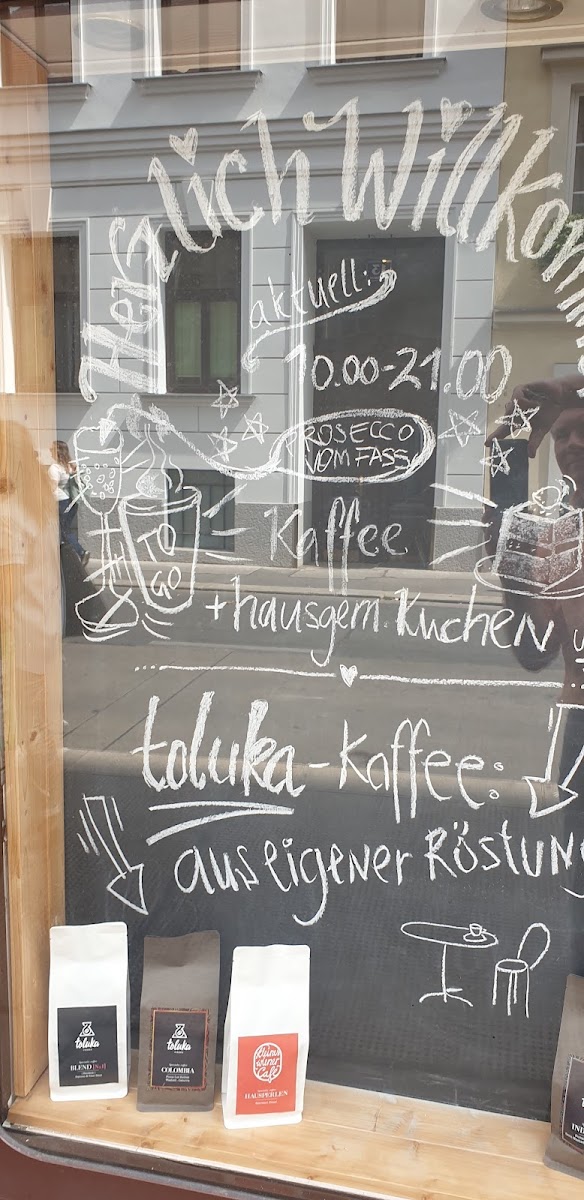 Herzlich Willkomm
aktuell:
10.00-21.00
PROSECCO
VOM FASS
TO
GO
Kaffee
+ hausgem Kuchen
toluka-Kaffee:
aus eigener Röstung
toluka
BLEND
toluka
COLOMBIA
Café
HAUSPERLEN